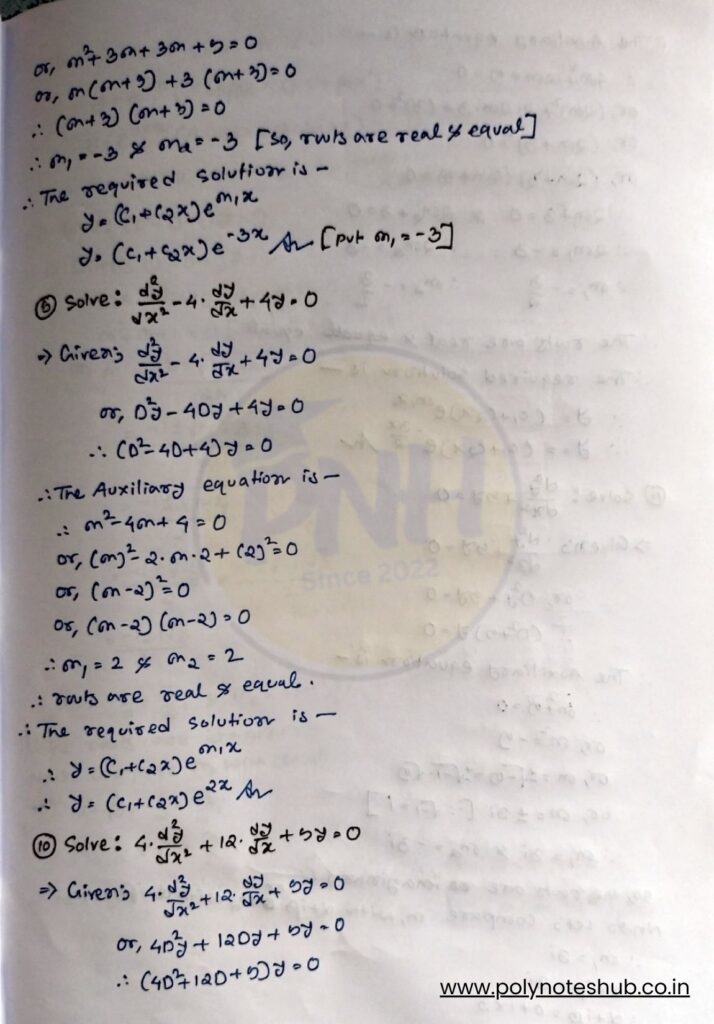 or, m²+3m+3m+9=0
or, m(m+3)+3(m+3)=0
∴ (m+3)(m+3)=0
∴ m₁=-3 & m₂=-3 [So, roots are real & equal]
∴ The required solution is —
y=(C₁+C₂x)e^{m₁x}
y=(C₁+C₂x)e^{-3x} Ans [Put m₁=-3]
⑨ Solve: d²y/dx² - 4·dy/dx + 4y=0
⇒ Given: d²y/dx² - 4·dy/dx + 4y=0
or, D²y-4Dy+4y=0
∴ (D²-4D+4)y=0
∴ The Auxiliary equation is —
∴ m²-4m+4=0
or, (m)²-2·m·2+(2)²=0
or, (m-2)²=0
or, (m-2)(m-2)=0
∴ m₁=2 & m₂=2
∴ roots are real & equal.
∴ The required solution is —
∴ y=(C₁+C₂x)e^{m₁x}
∴ y=(C₁+C₂x)e^{2x} Ans
⑩ Solve: 4·d²y/dx² + 12·dy/dx + 9y=0
⇒ Given: 4·d²y/dx² + 12·dy/dx + 9y=0
or, 4D²y+12Dy+9y=0
∴ (4D²+12D+9)y=0
PNH
Since 2022
www.polynoteshub.co.in